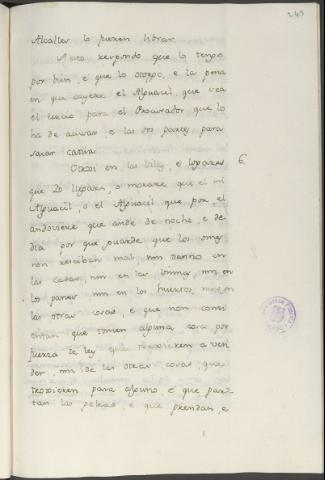 243
Alcalles lo fueren librar.
A esto respondo, que lo tengo
por bien, e que lo otorgo, e la pena
en que cayere el Alguacil, que sea
el tercio para el Procurador que lo
ha de acusar e las dos partes para
sacar cativos
Otrosi en las villas, e logares €
que Yo llegare, o morare que el mi
Alguacil, o el Alguacil que por el
andoviere que ande de noche, e de
dia por que guarde que los omes
non resciban mal, nin danno en
las casas, nin en las vinnas, nin en
los panes nin en los huertos nin en
las otras cosas, e que non consi
entan que tomen alguna cosa por
fuerza de los que troxieren a ven
der, nin de las otras cosas, que
troxieren para alguno, e que par
tan las peleas e que prendan, e